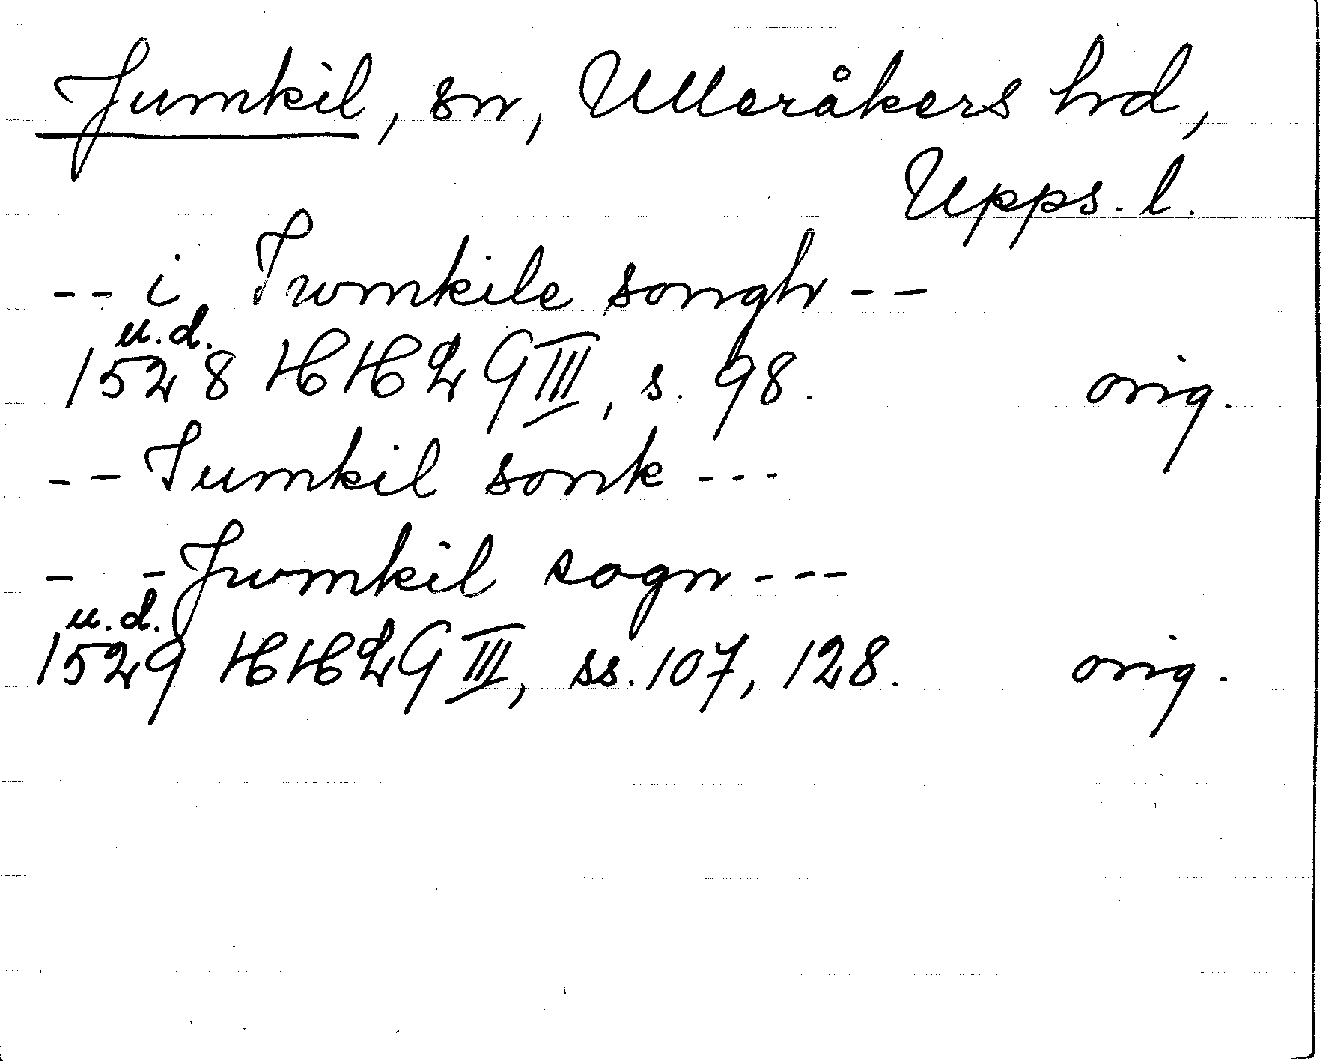 Jumkil, sn, Ulleråkers hd,
Upps. l.
-- i Iwmkile songh --
u.d.
1528 HHL G III, s. 98. orig.
-- Iumkil sonk ---
- - Jwmkil sogn ---
u.d.
1529 HHL G III, ss. 107, 128. orig.